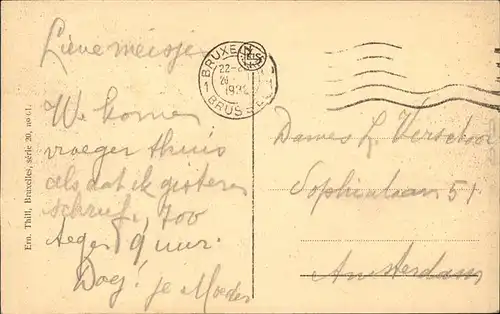 Lieve meisje
We komen
vroeger thuis
als dat ik gisteren
schreef, zoo
tegen 9 uur.
Dag! je Moeder
1 BRUXELLES
22-
1932
BRUSSEL
Dames L. Verschoor
Sophialaan 51
Amsterdam
Ern. Thill, Bruxelles, série 20, no 61.